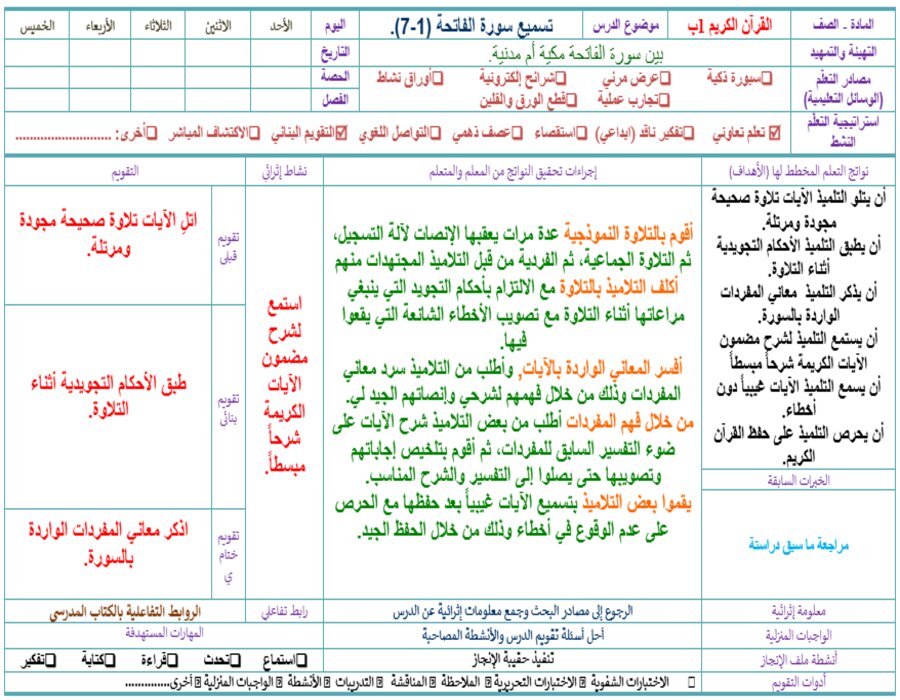 المادة - الصف القرآن الكريم 1ب موضوع الدرس تسميع سورة الفاتحة (1-7). اليوم الأحد الاثنين الثلاثاء الأربعاء الخميس
التهيئة والتمهيد بين سورة الفاتحة مكية أم مدنية. التاريخ
مصادر التعلم (الوسائل التعليمية) ❑سبورة ذكية ❑عرض مرئي ❑شرائح إلكترونية ❑أوراق نشاط الحصة
❑تجارب عملية ❑قطع الورق والفلين الفصل
استراتيجية التعلم النشط ☑ تعلم تعاوني ❑تفكير ناقد (ابداعي) ❑استقصاء ❑عصف ذهني ❑التواصل اللغوي ☑التقويم البنائي ❑الاكتشاف المباشر ❑أخرى: ............................
نواتج التعلم المخطط لها (الأهداف) إجراءات تحقيق النواتج من المعلم والمتعلم نشاط إثرائي التقويم
أن يتلو التلميذ الآيات تلاوة صحيحة
مجودة ومرتلة.
أن يطبق التلميذ الأحكام التجويدية
أثناء التلاوة.
أن يذكر التلميذ معاني المفردات
الواردة بالسورة.
أن يستمع التلميذ لشرح مضمون
الآيات الكريمة شرحاً مبسطاً
أن يسمع التلميذ الآيات غيبياً دون
أخطاء.
أن يحرص التلميذ على حفظ القرآن
الكريم.
الخبرات السابقة
مراجعة ما سبق دراستة
أقوم بالتلاوة النموذجية عدة مرات يعقبها الإنصات لآلة التسجيل،
ثم التلاوة الجماعية، ثم الفردية من قبل التلاميذ المجتهدات منهم
أكلف التلاميذ بالتلاوة مع الالتزام بأحكام التجويد التي ينبغي
مراعاتها أثناء التلاوة مع تصويب الأخطاء الشائعة التي يقعوا
فيها.
أفسر المعاني الواردة بالآيات, وأطلب من التلاميذ سرد معاني
المفردات وذلك من خلال فهمهم لشرحي وإنصاتهم الجيد لي.
من خلال فهم المفردات أطلب من بعض التلاميذ شرح الآيات على
ضوء التفسير السابق للمفردات، ثم أقوم بتلخيص إجاباتهم
وتصويبها حتى يصلوا إلى التفسير والشرح المناسب.
يقموا بعض التلاميذ بتسميع الآيات غيبياً بعد حفظها مع الحرص
على عدم الوقوع في أخطاء وذلك من خلال الحفظ الجيد.
استمع
لشرح
مضمون
الآيات
الكريمة
شرحاً
مبسطاً.
تقويم
قبلي
اتل الآيات تلاوة صحيحة مجودة
ومرتلة.
تقويم
بنائي
طبق الأحكام التجويدية أثناء
التلاوة.
تقويم
ختام
ي
اذكر معاني المفردات الواردة
بالسورة.
معلومة إثرائية الرجوع إلى مصادر البحث وجمع معلومات إثرائية عن الدرس رابط تفاعلي الروابط التفاعلية بالكتاب المدرسي
الواجبات المنزلية أحل أسئلة تقويم الدرس والأنشطة المصاحبة المهارات المستهدفة
أنشطة ملف الإنجاز تنفيذ حقيبة الإنجاز ❑استماع ❑تحدث ❑قراءة ❑كتابة ❑تفكير
أدوات التقويم الاختبارات الشفوية الاختبارات التحريرية الملاحظة المناقشة التدريبات الأنشطة الواجبات المنزلية أخرى...............